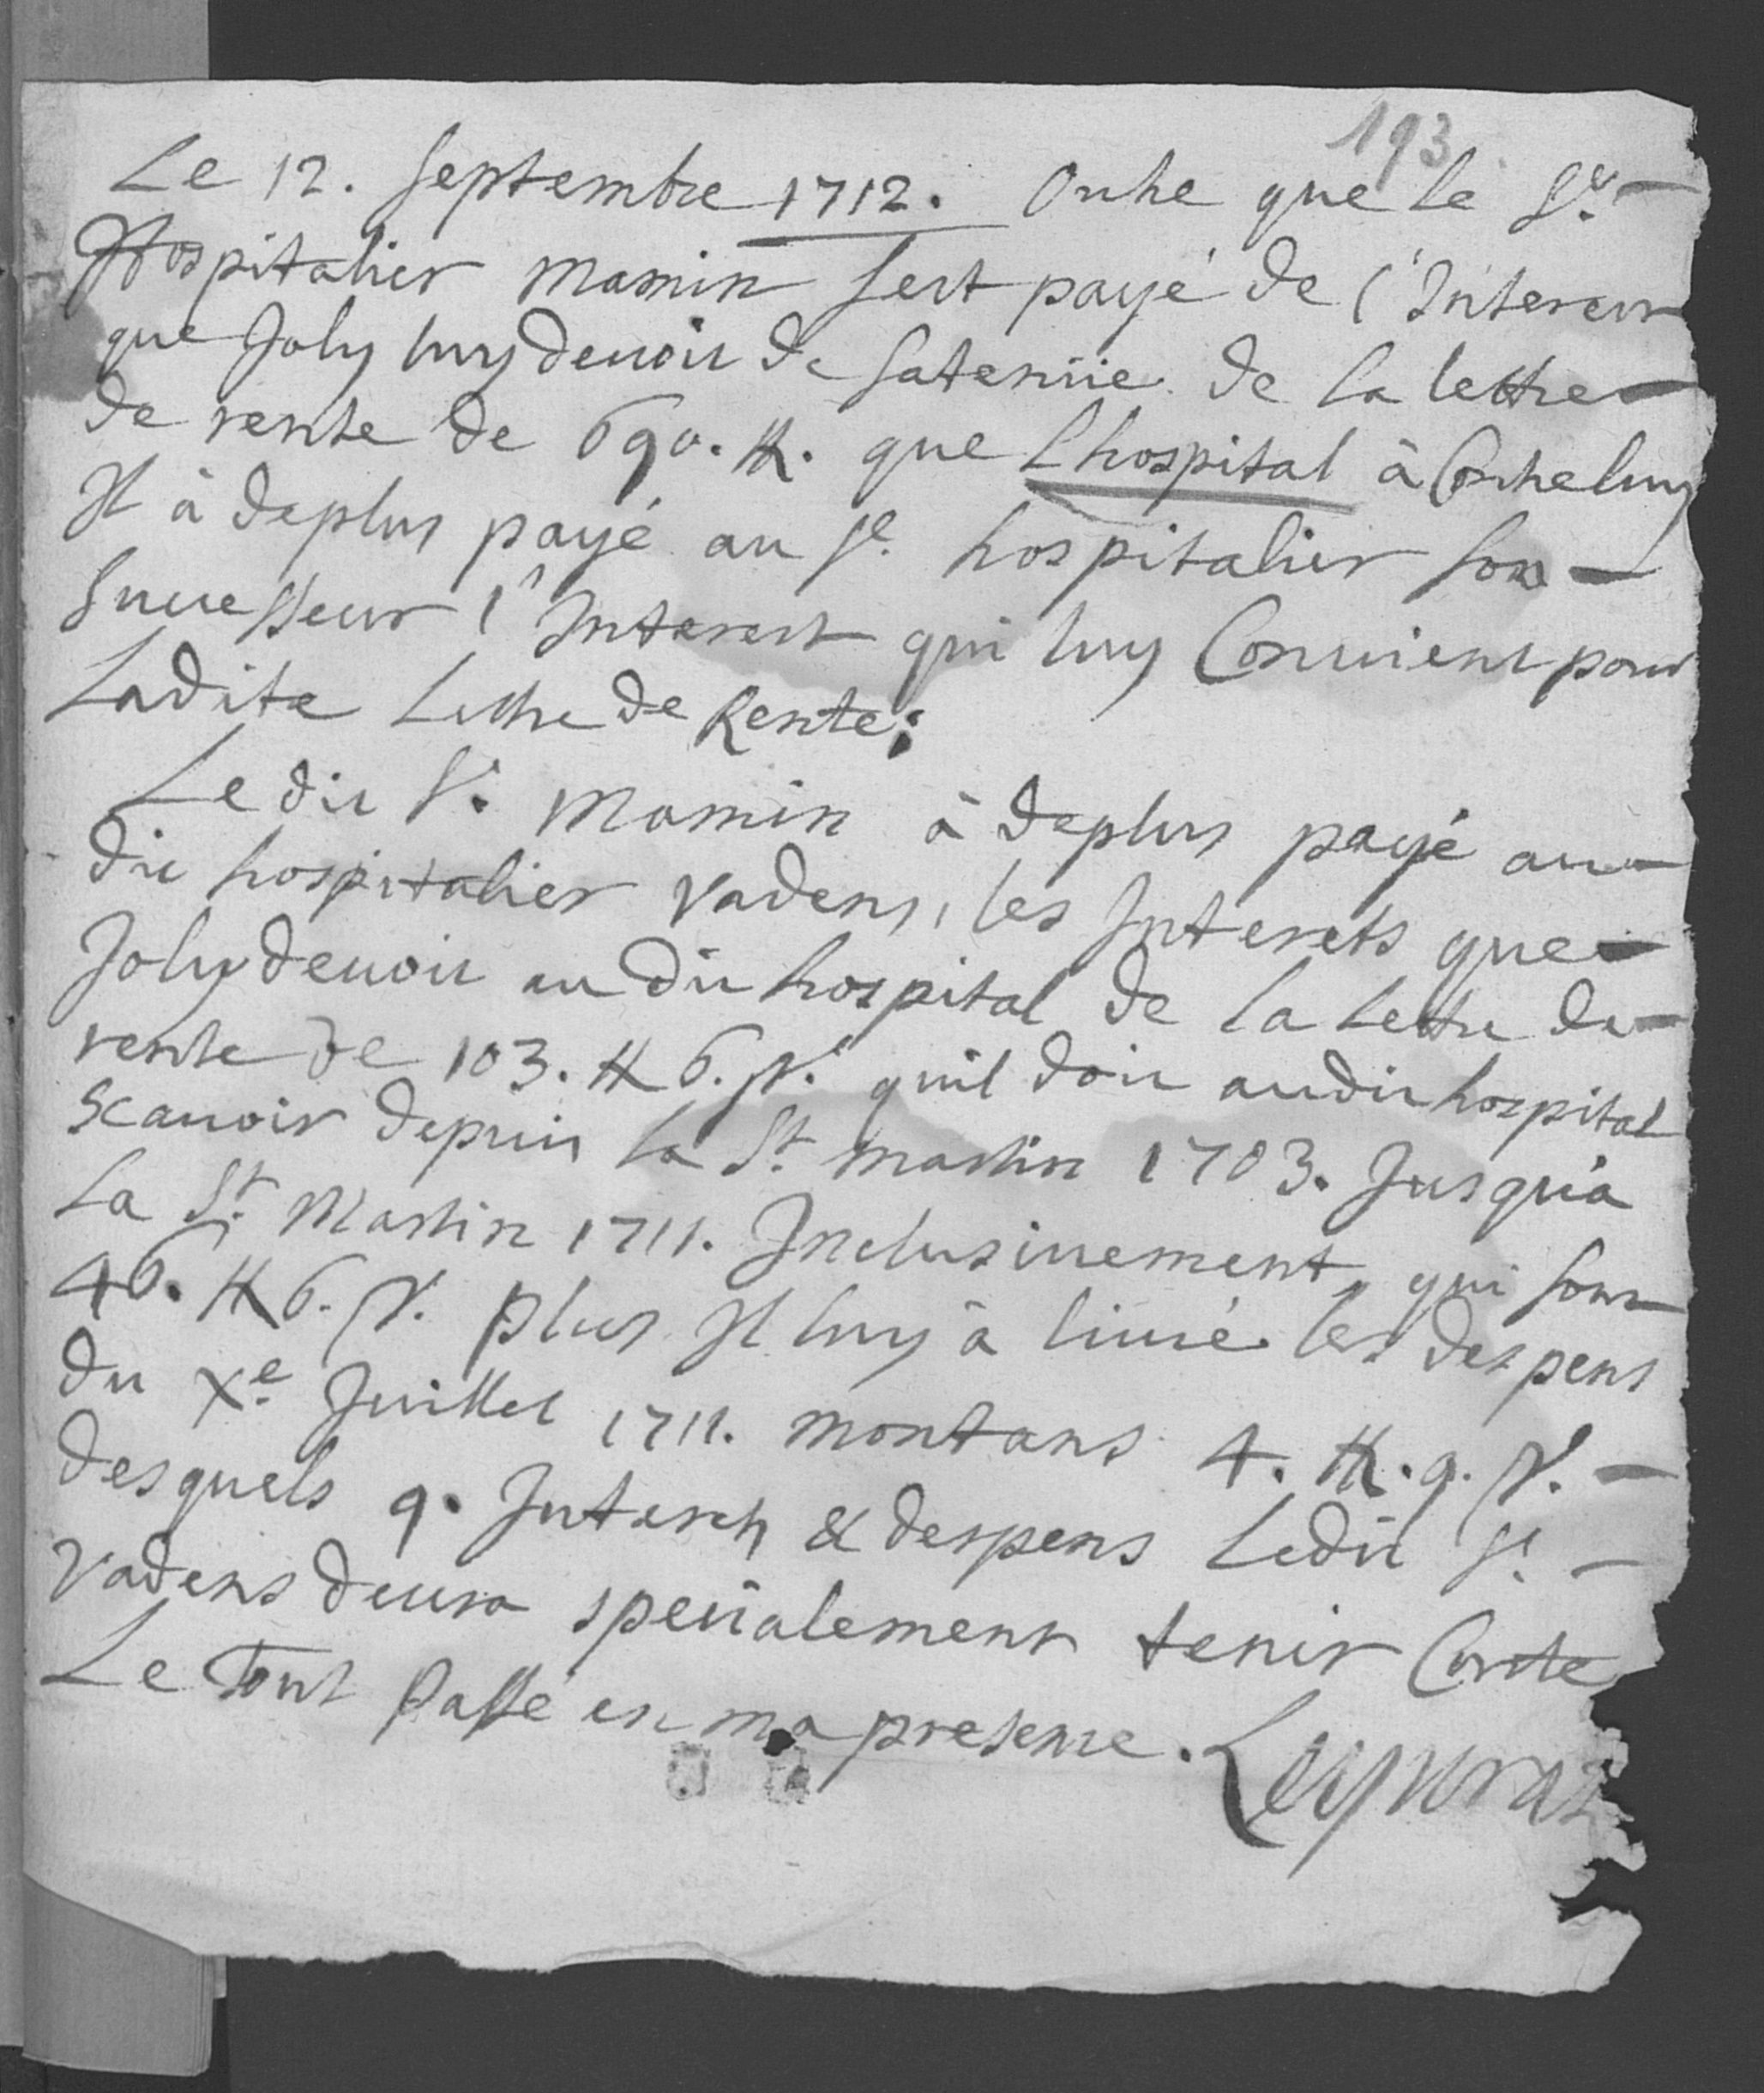 193
Le 12. Septembre 1712. Outre que le Sr.
Hospitalier Mamin sest payé de l'Interest
que Joly luy devoit de sa tenüe de la lettre
de rente de 690. ff. que Lhospital à Contre luy
Il à deplus payé au Sr. hospitalier son
Successeur l'Interest qui luy Convient pour
Ladite Lettre de Rente;
Le dit Sr. Mamin à deplus payé au
dit hospitalier Vadens, les Interets que
Joly devoit au dit hospital de la Lettre de
rente de 103. ff 6. s. quil doit audit hospital
Scavoir depuis la St. Martin 1703. Jusqu'à
La St. Martin 1711. Inclusivement, qui sont
46. ff 6. s. plus Il luy à livré les despens
du Xe. Juillet 1711. montans 4. ff. 9. s.
desquels 9. Interets & despens Ledit Sr.
Vadens devra specialement tenir Conte
Le Tout Passé en ma presence. Leyvraz